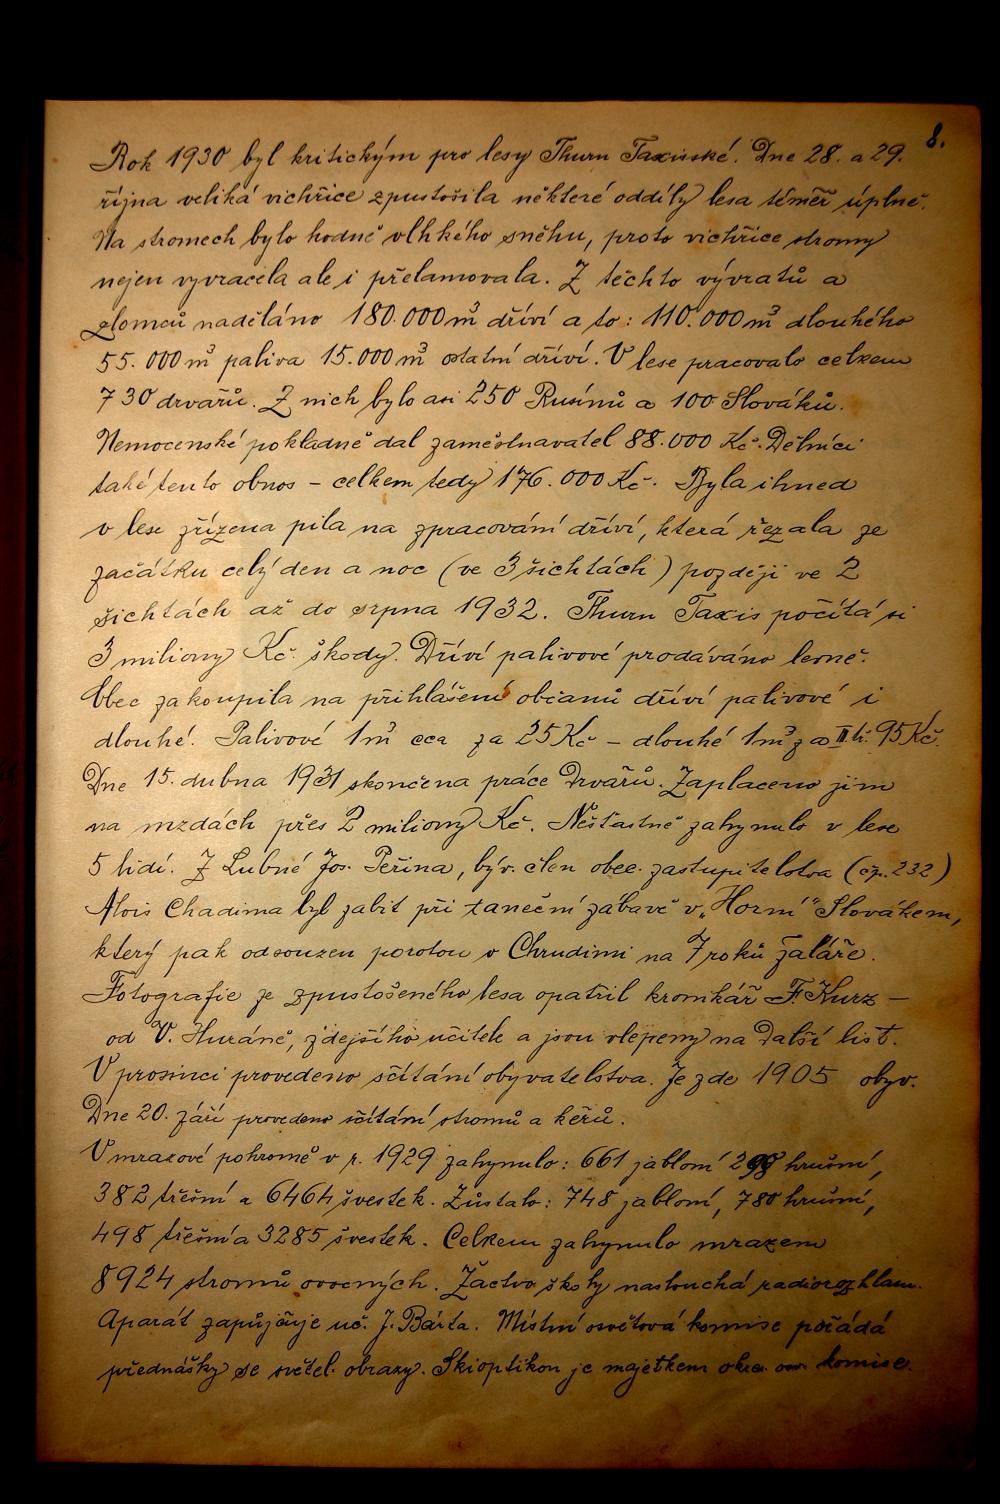 8.
Rok 1930 byl kritickým pro lesy Thurn Taxisské. Dne 28. a 29.
října veliká vichřice zpustošila některé oddíly lesa téměř úplně.
Na stromech bylo hodně vlhkého sněhu, proto vichřice stromy
nejen vyvracela ale i přelamovala. Z těchto vývratů a
zlomců naděláno 180.000 m³ dříví a to: 110.000 m³ dlouhého
55.000 m³ paliva 15.000 m³ ostatní dříví. V lese pracovalo celkem
730 drvařů. Z nich bylo asi 250 Rusínů a 100 Slováků.
Nemocenské pokladně dal zaměstnavatel 88.000 Kč. Dělníci
také tento obnos – celkem tedy 176.000 Kč. Byla ihned
v lese zřízena pila na zpracování dříví, která řezala ze
začátku celý den a noc (ve 3 šichtách) později ve 2
šichtách až do srpna 1932. Thurn Taxis počítá si
3 miliony Kč škody. Dříví palivové prodáváno levně.
Obec zakoupila na přihlášení občanů dříví palivové i
dlouhé. Palivové 1 m³ cca za 25 Kč – dlouhé 1 m³ za II tř. 95 Kč.
Dne 15. dubna 1931 skončena práce Drvařů. Zaplaceno jim
na mzdách přes 2 miliony Kč. Nešťastně zahynulo v lese
5 lidí. Z Lubné Jos. Peřina, býv. člen obec. zastupitelstva (čp. 232)
Alois Chadima byl zabit při taneční zábavě v „Horní" Slovákem,
který pak odsouzen porotou v Chrudimi na 7 roků žaláře.
Fotografie ze zpustošeného lesa opatřil kronikář F. Kurz –
od V. Huráně, zdejšího učitele a jsou vlepeny na Další list.
V prosinci provedeno sčítání obyvatelstva. Je zde 1905 obyv.
Dne 20. září provedeno sčítání stromů a keřů.
V mrazové pohromě v r. 1929 zahynulo: 661 jabloní hrušní,
382 třešní a 6464 švestek. Zůstalo: 748 jabloní, 780 hrušní,
498 třešní a 3285 švestek. Celkem zahynulo mrazem
8924 stromů ovocných. Žactvo školy naslouchá radiorozhlasu.
Aparát zapůjčuje uč. J. Bárta. Místní osvětová komise pořádá
přednášky se světel. obrazy. Skioptikon je majetkem okres. osv. komise.